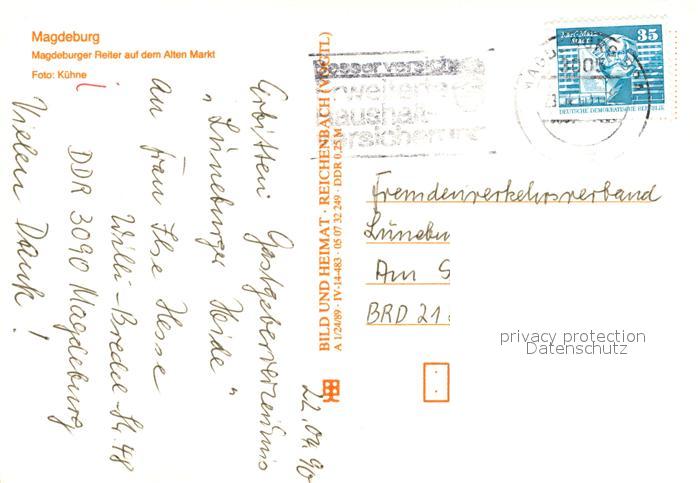 Magdeburg
Magdeburger Reiter auf dem Alten Markt
Foto: Kühne
Erbitten Gastgeberverzeichnis
"Lüneburger Heide"
An Frau Ilse Hesse
Willi-Bredel-Str. 48
DDR 3090 Magdeburg
Vielen Dank!
22.04.90
BILD UND HEIMAT · REICHENBACH (VOGTL)
A 1/24/89 · IV-14-483 · 05 07 32 249 · DDR 0,25 M
Besser versichert
erweiterte
Haushalt-
versicherung
MAGDEBURG
35
DEUTSCHE DEMOKRATISCHE REPUBLIK
Fremdenverkehrsverband
Lünebu
Am S
BRD 21
privacy protection
Datenschutz